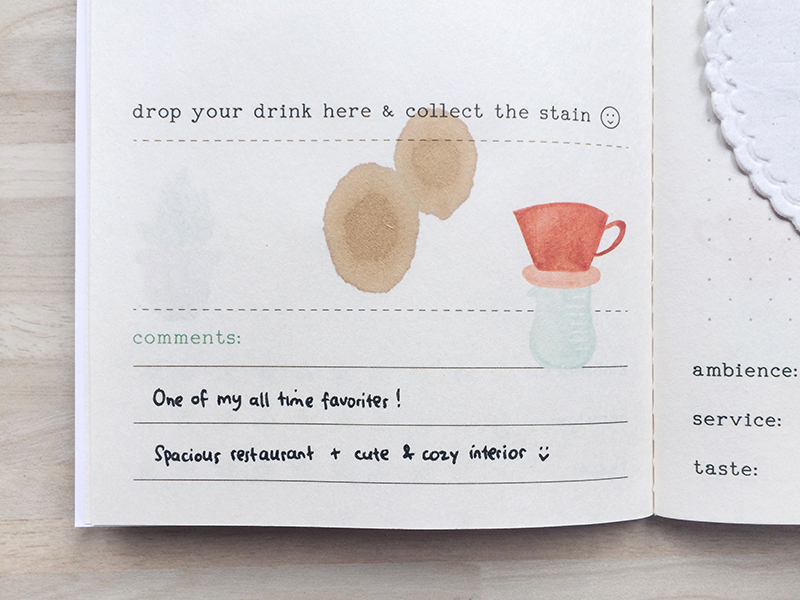 drop your drink here & collect the stain ☺
comments:
One of my all time favorites!
Spacious restaurant + cute & cozy interior :)
ambience:
service:
taste: